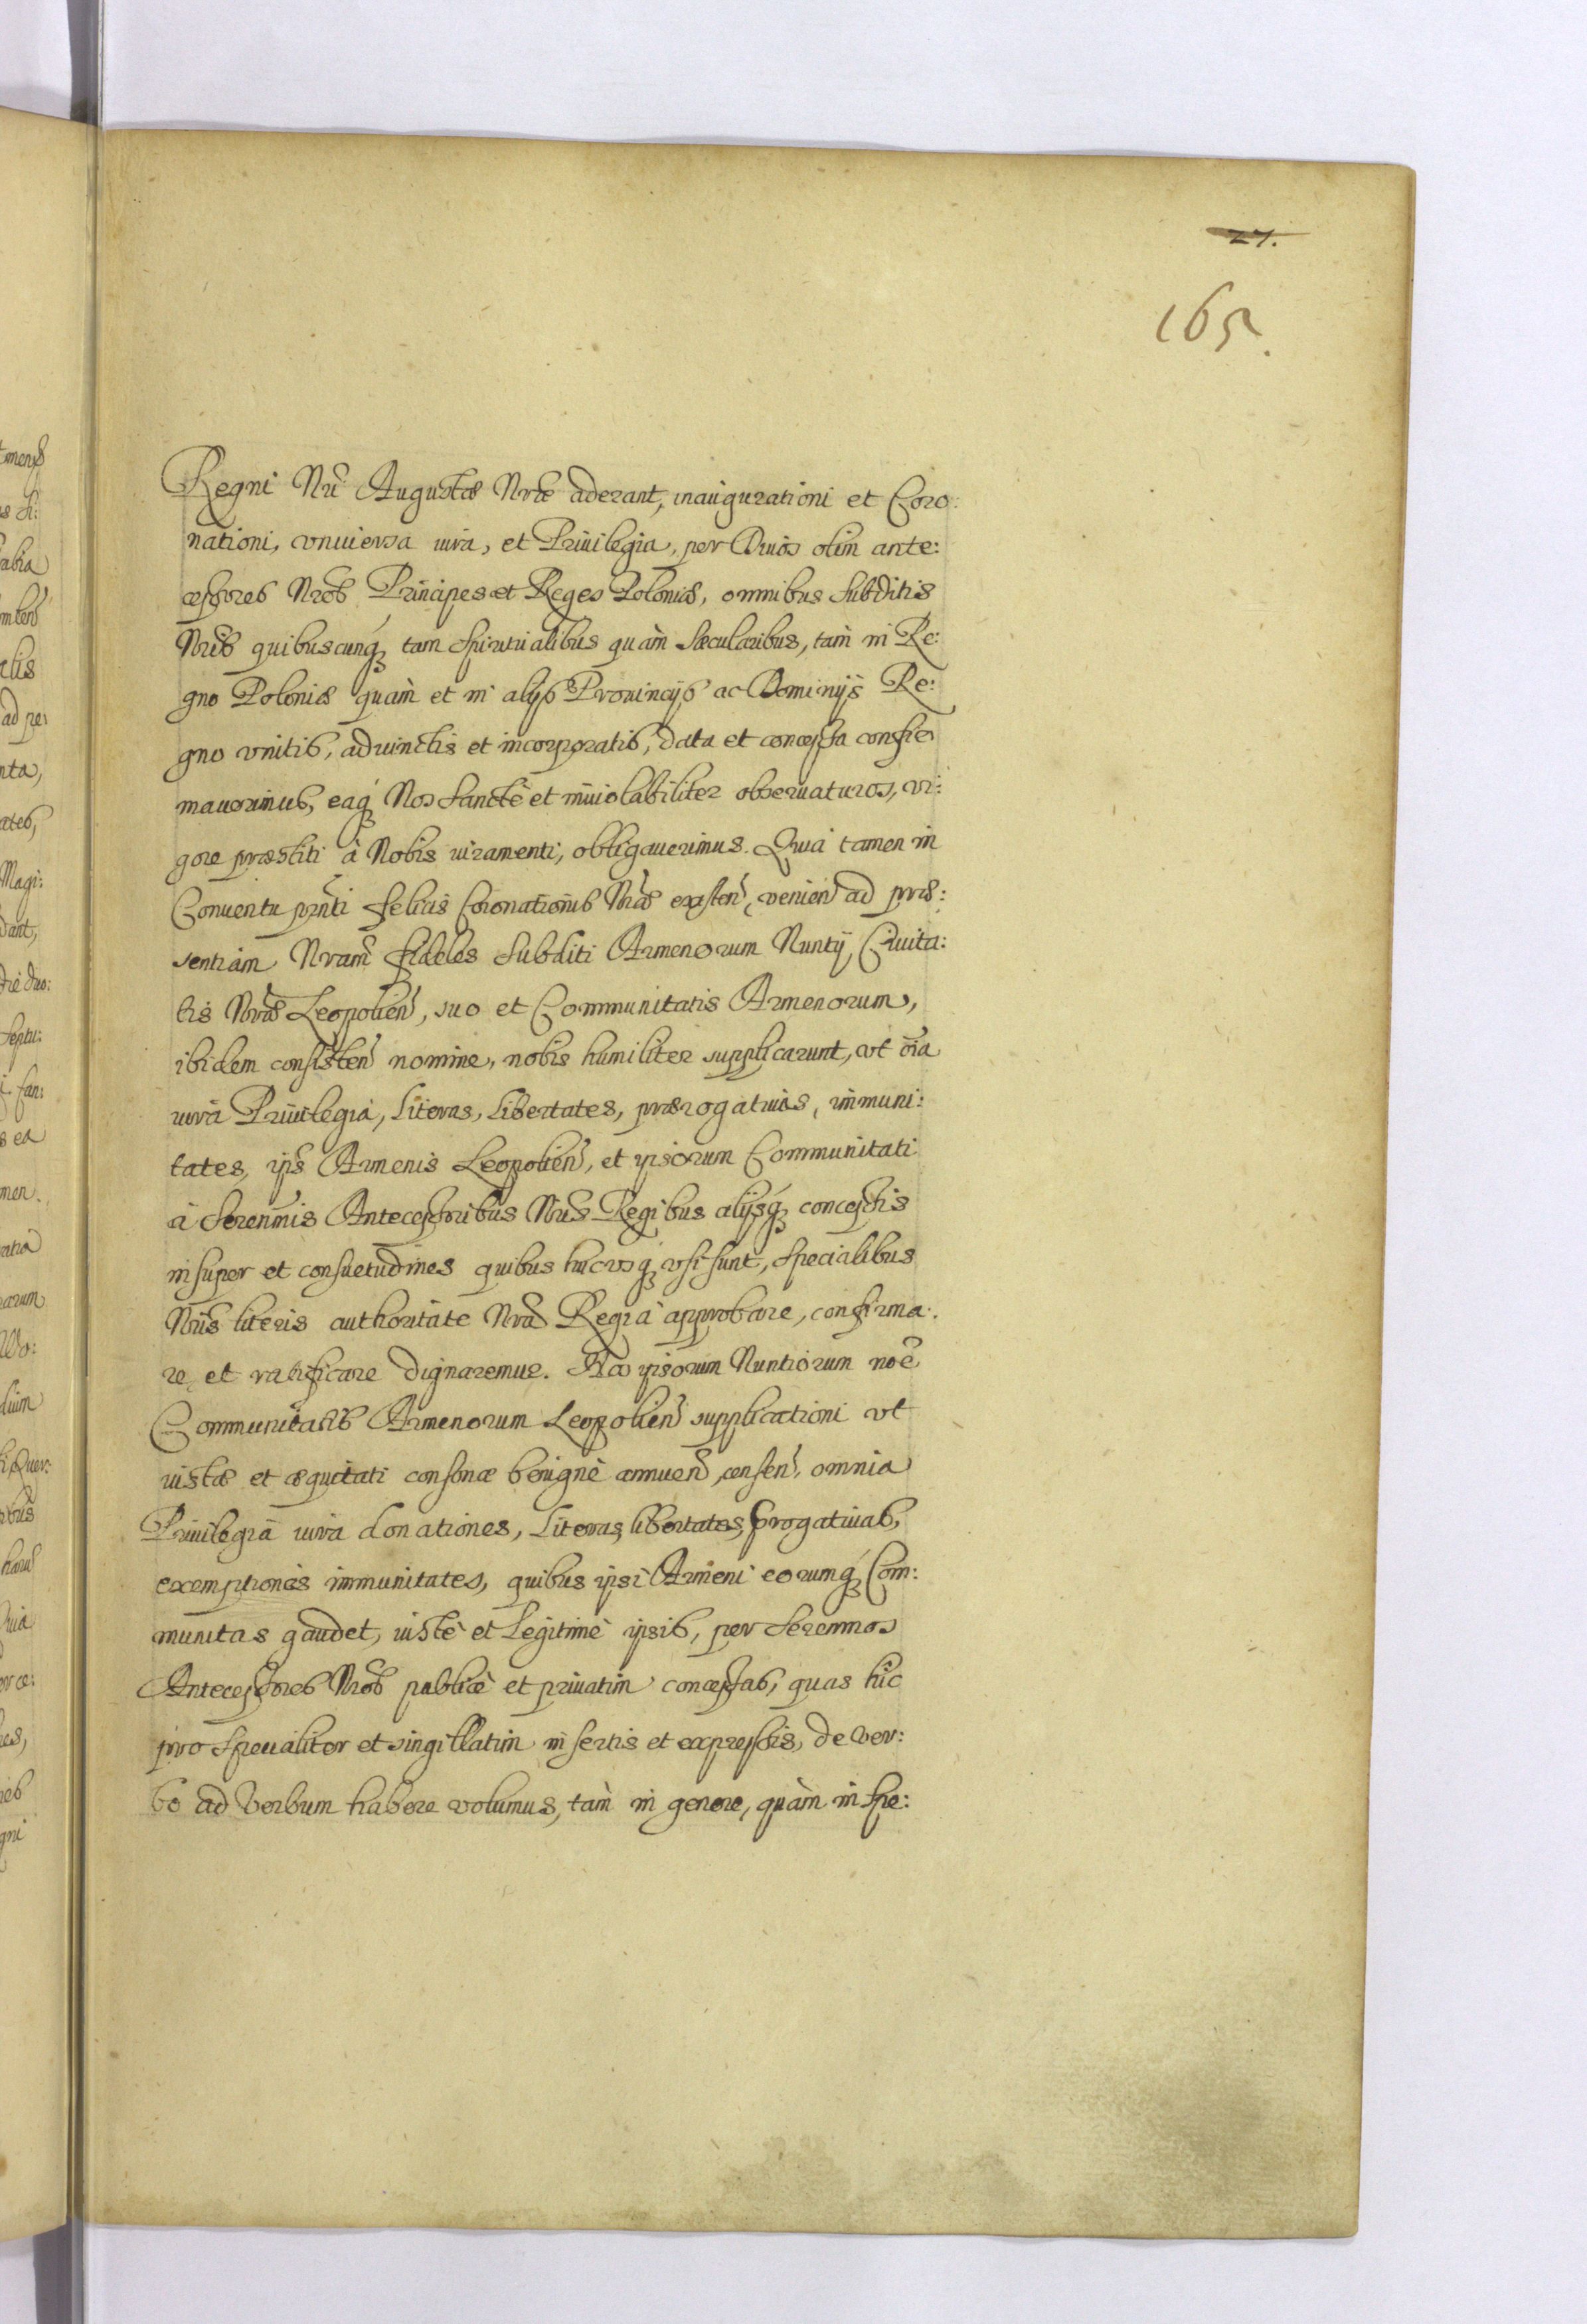 27.
165.
Regni Nri Augustæ Nræ aderant, inaugurationi et Coro:
nationi, vniuersa iura, et Priuilegia, per Diuos olim ante:
cessores Nros Principes et Reges Poloniæ, omnibus subditis
Nris quibuscunq tam spiritualibus quàm sæcularibus, tàm in Re:
gno Poloniæ quàm et in alijs Prouincijs ac Dominijs Re:
gno vnitis, aduinctis et incorporatis, data et concessa confir
mauerimus, eaq Nos sanctè et inuiolabiliter obseruaturos, vi:
gore præstiti à Nobis iuramenti, obligauerimus. Quia tamen in
Conuentu prnti felicis Coronationis Nræ existen, venien ad præ:
sentiam Nram fideles subditi Armenorum Nuntij, Ciuita:
tis Nræ Leopolien, suo et Communitatis Armenorum,
ibidem consisten nomine, nobis humiliter supplicarunt, vt oia
iura Priuilegia, Literas, Libertates, prærogatiuas, immuni:
tates, ips Armenis Leopolien, et ipsorum Communitati
à Serenmis Antecessoribus Nris Regibus alijsq concessis
insuper et consuetudines quibus hucusq vsi sunt, specialibus
Nris literis authoritate Nra Regia approbare, confirma:
re et ratificare dignaremur. Nos ipsorum Nuntiorum noe
Communitatis Armenorum Leopolien supplicationi vt
iustæ et æquitati consonæ benignè annuen, censen, omnia
Priuilegia iura donationes, Literas, libertates, progatiuas,
exemptiones immunitates, quibus ipsi Armeni eorumq Com:
munitas gaudet, iustè et Legitimè ipsis, per Serenmos
Antecessores Nros publicè et priuatim concessas, quas hic
pro specialiter et singillatim insertis et expressis, de ver:
bo ad verbum habere volumus, tàm in genere, quàm in spe: